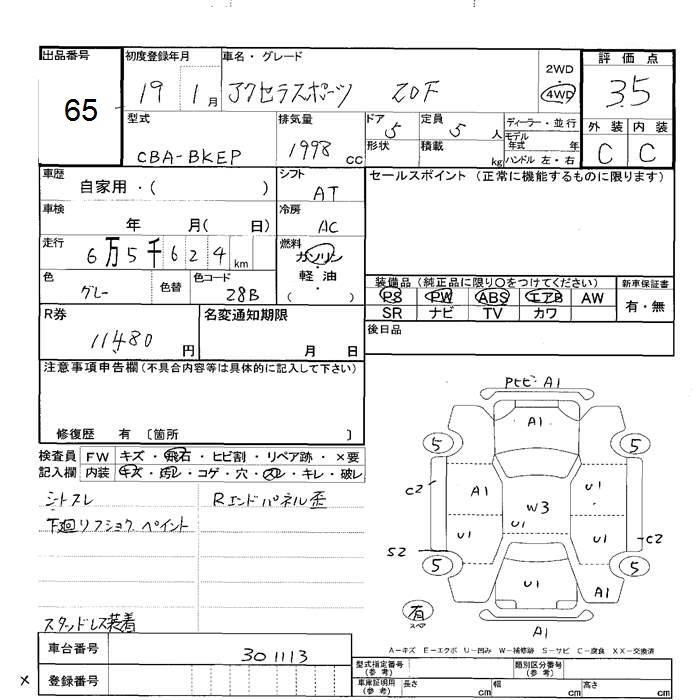 出品番号 初度登録年月 車名・グレード 2WD ・ 4WD 評価点
65 19 1月 アクセラスポーツ 20F 3.5
型式 CBA-BKEP 排気量 1998 CC ドア 5 形状 定員 5 人 積載 kg ディーラー・並行 モデル年式 年 ハンドル 左・右 外装 C 内装 C
車歴 自家用・( ) シフト AT セールスポイント (正常に機能するものに限ります)
車検 年 月( 日) 冷房 AC
走行 6万5千624km 燃料 ガソリン・軽油 ( )
色 グレー 色替 色コード 28B
装備品 (純正品に限り○をつけてください) 新車保証書
PS PW ABS エアB AW 有・無
SR ナビ TV カワ
R券 11480 円 名変通知期限 月 日 後日品
注意事項申告欄 (不具合内容等は具体的に記入して下さい)
修復歴 有 〔箇所 〕
検査員 FW キズ・飛石・ヒビ割・リペア跡・×要
記入欄 内装 キズ・汚レ・コゲ・穴・スレ・キレ・破レ
シートスレ Rエンドパネル歪
下廻リフショク ペイント
スタッドレス装着
A1
A1
5 5
C2 A1 U1
W3
U1 U1 U1 C2
S2
5 5
U1 A1
有
スペア
A1
A-キズ E-エクボ U-凹み W-補修跡 S-サビ C-腐食 XX-交換済
車台番号 301113
× 登録番号
型式指定番号 (参考) 類別区分番号 (参考)
車庫証明用 (参考) 長さ cm 幅 cm 高さ cm